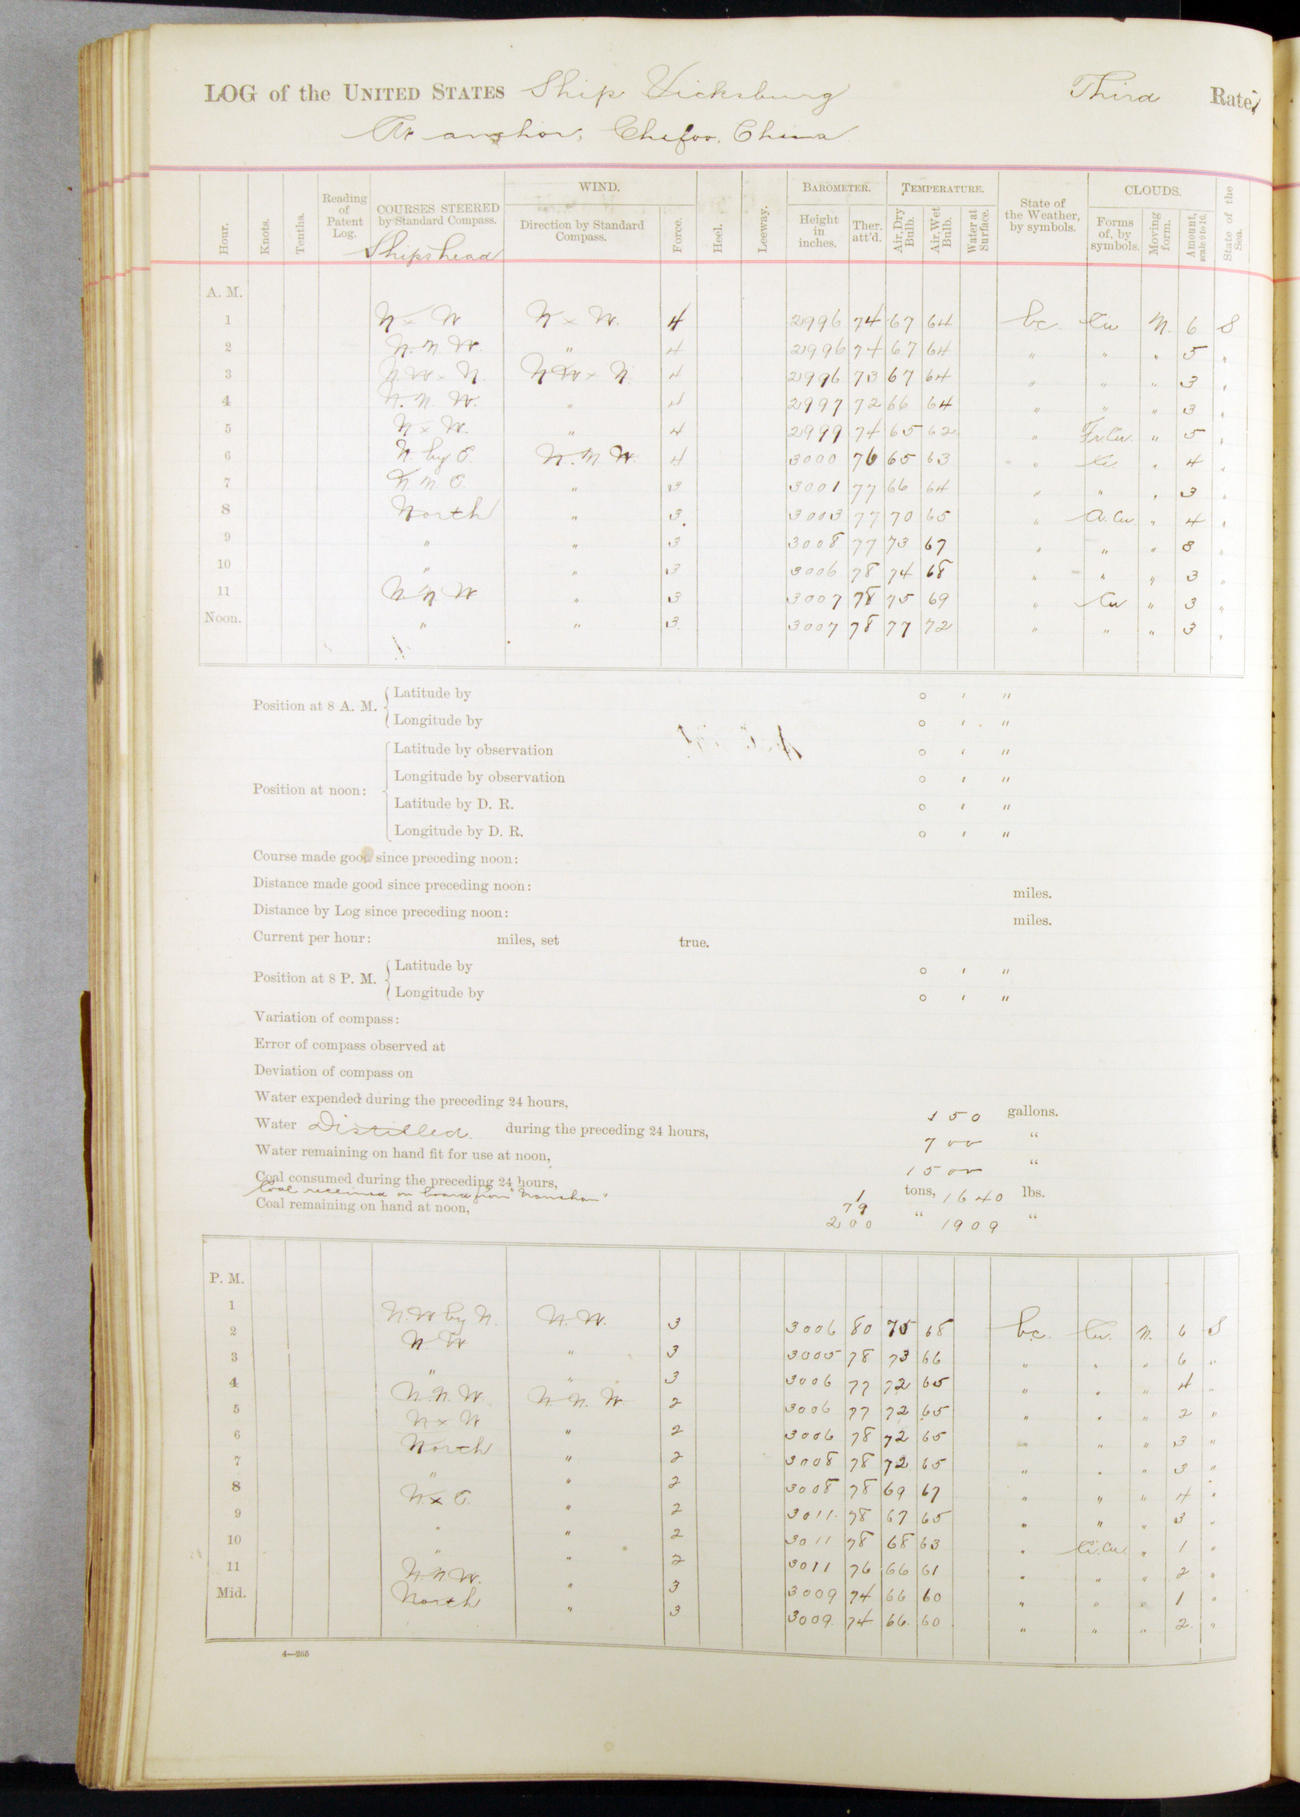 LOG of the UNITED STATES Ship Vicksburg Third Rate,
At anchor, Chefoo, China
Hour. Knots. Tenths. Reading of Patent Log. COURSES STEERED by Standard Compass. WIND. Direction by Standard Compass. Force. Heel. Leeway. BAROMETER. Height in inches. Ther. att'd. TEMPERATURE. Air, Dry Bulb. Air, Wet Bulb. Water at Surface. State of the Weather, by symbols. CLOUDS. Forms of, by symbols. Moving form. Amount, scale 0 to 10. State of the Sea.
Ships head
A. M.
1 N x W N x W. 4 2996 74 67 64 bc. Cu N. 6 S
2 N. N. W. " 4 2996 74 67 64 " " " 5 "
3 N. W x N. N W x N. 4 2996 73 67 64 " " " 3 "
4 N. N. W. " 4 2997 72 66 64 " " " 3 "
5 N x W. " 4 2999 74 65 62 " Fr. Cu. " 5 "
6 N. by E. N. N. W. 4 3000 76 65 63 " " 4 "
7 N. N. E. " 3 3001 77 66 64 " " " 3 "
8 North " 3. 3003 77 70 65 " A. Cu. " 4 "
9 " " 3 3008 77 73 67 " " " 3 "
10 " " 3 3006 78 74 68 " " " 3 "
11 N N W " 3 3007 78 75 69 " Cu " 3 "
Noon. " " 3. 3007 78 77 72 " " " 3 "
Position at 8 A. M. Latitude by ° ′ ″
Longitude by ° ′ ″
Position at noon: Latitude by observation ° ′ ″
Longitude by observation ° ′ ″
Latitude by D. R. ° ′ ″
Longitude by D. R. ° ′ ″
Course made good since preceding noon:
Distance made good since preceding noon: miles.
Distance by Log since preceding noon: miles.
Current per hour: miles, set true.
Position at 8 P. M. Latitude by ° ′ ″
Longitude by ° ′ ″
Variation of compass:
Error of compass observed at
Deviation of compass on
Water expended during the preceding 24 hours, 150 gallons.
Water Distilled. during the preceding 24 hours, 700 "
Water remaining on hand fit for use at noon, 1500 "
Coal consumed during the preceding 24 hours, 1 tons, 1640 lbs.
Coal received on board from "Nanshan" 79
Coal remaining on hand at noon, 200 " 1909 "
P. M.
1 N. W by N. N. W. 3 3006 80 75 68 bc. Cu. N. 6 S
2 N W " 3 3005 78 73 66 " " " 6 "
3 " " 3 3006 77 72 65 " " " 4 "
4 N. N. W. N. N. W 2 3006 77 72 65 " " " 2 "
5 N x W " 2 3006 78 72 65 " " " 3 "
6 North " 2 3008 78 72 65 " " " 3 "
7 " " 2 3008 78 69 67 " " " 4 "
8 N x E. " 2 3011 78 67 65 " " " 3 "
9 " " 2 3011 78 68 63 " Ci. Cu. " 1 "
10 " " 2 3011 76 66 61 " " " 2 "
11 N. N. W. " 3 3009 74 66 60 " " " 1 "
Mid. North " 3 3009 74 66 60 " " " 2 "
4—255